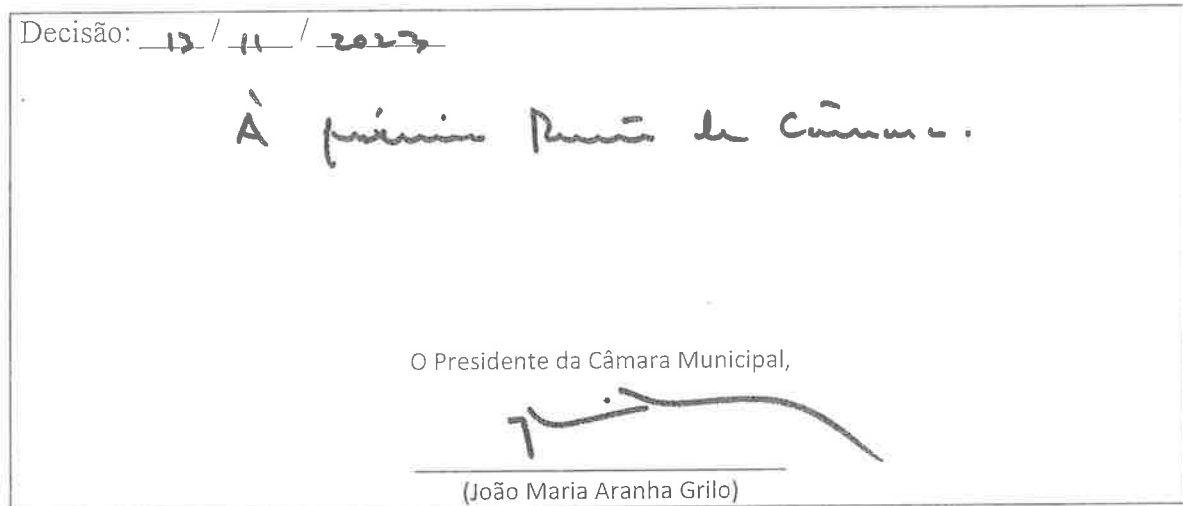 Decisão: 13 / 11 / 2023
À próxima Reunião de Câmara.
O Presidente da Câmara Municipal,
(João Maria Aranha Grilo)